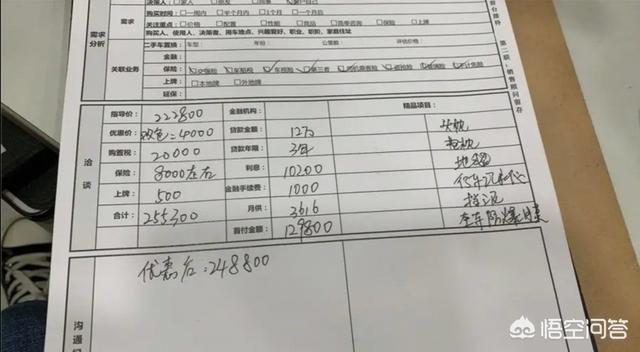 决策人: □家人 □朋友 □同事 □客户自己
需求分析
购买时间: □一周内 □半个月内 □1个月 □1个月后
关注重点: □价格 □配置 □性能 □竞品 □保险 □上牌
购买人、使用人、决策者、用车地点、兴趣爱好、职业、职阶、家庭住址
二手车置换: 车型: 年份: 公里数: 评估价格:
关联业务
金融:
保险: 交强险 车船税 车损险 第三者
上牌: □本地牌 □外地牌
延保:
第二联:销售顾问留存
洽谈
指导价: 222800 金融机构: 精品项目:
优惠价: 4000 贷款金额: 12万 头枕
购置税: 20000 贷款年限: 3年
保险: 8000左右 利息: 10200 地毯
上牌: 500 金融手续费: 1000 行车记录仪
合计: 255300 月供: 3616
首付金额: 129800 全车防爆
优惠后:248800
沟通
悟空问答